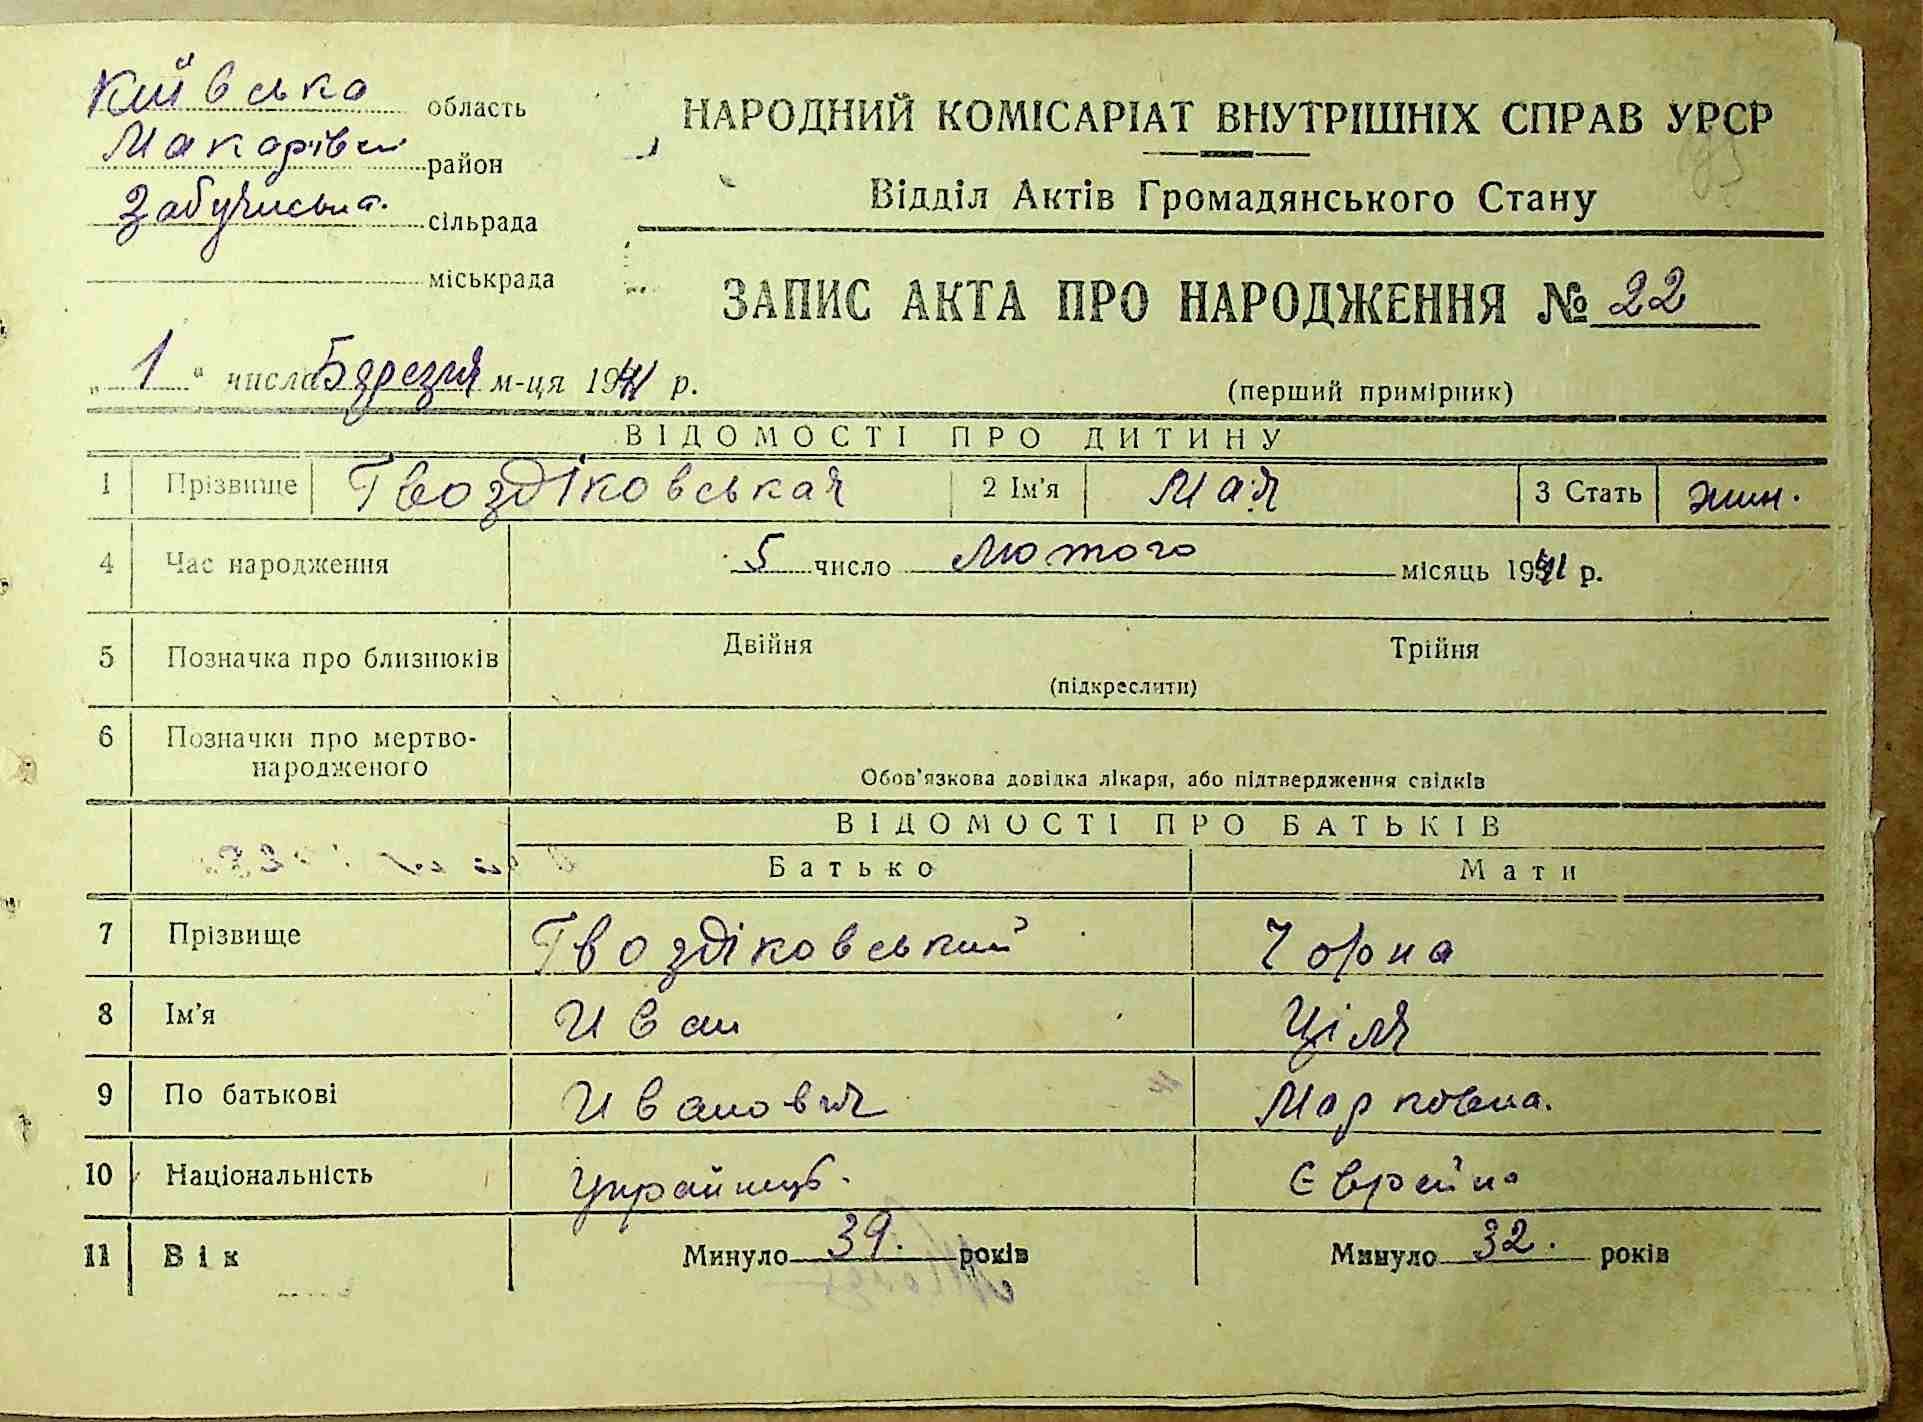 Київська область
Макарівськ район
Забучиська сільрада
міськрада
НАРОДНИЙ КОМІСАРІАТ ВНУТРІШНІХ СПРАВ УРСР
Відділ Актів Громадянського Стану
ЗАПИС АКТА ПРО НАРОДЖЕННЯ № 22
„ 1 “ числа Березня м-ця 1941 р.
(перший примірник)
ВІДОМОСТІ ПРО ДИТИНУ
1 Прізвище Гвоздіковськая 2 Ім'я Мая 3 Стать жин.
4 Час народження 5 число Лютого місяць 1941 р.
5 Позначка про близнюків Двійня Трійня
(підкреслити)
6 Позначки про мертво-
народженого
Обов'язкова довідка лікаря, або підтвердження свідків
ВІДОМОСТІ ПРО БАТЬКІВ
Батько Мати
7 Прізвище Гвоздіковський Чорна
8 Ім'я Иван Ціля
9 По батькові Иванович Марковна.
10 Національність Українець. Єврейка
11 Вік Минуло 39. років Минуло 32. років